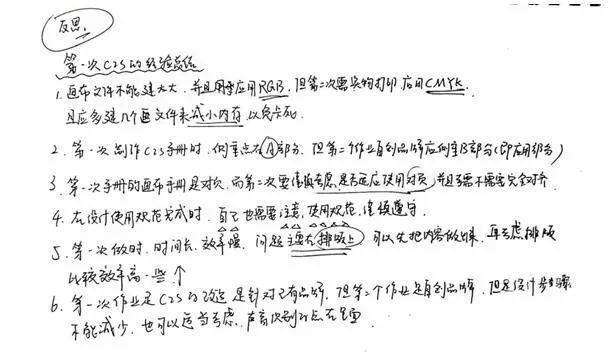 反思。
第一次CIS的经验总结
1. 画布文件不能建太大，并且用于应用RGB，但第二次需实物打印应用CMYK.
且应多建几个画文件来减小内存以免卡死.
2. 第一次制作CIS手册时，侧重点在A部分，但第二个作业自创品牌应侧重B部分（即应用部分）
3. 第一次手册的画布手册是对页，而第二次要慎重考虑，是否还应使用对页，并且考虑需不需要完全对齐.
4. 在设计使用规范时，自己也需要注意，使用规范，谨慎遵守.
5. 第一次做时，时间长，效率慢，问题主要在排版上，可以先把内容做出来，再考虑排版
比较效率高一些
6. 第一次作业是CIS的改造是针对已有品牌，但第二个作业是自创品牌，但是设计步骤
不能减少，也可以适当考虑，